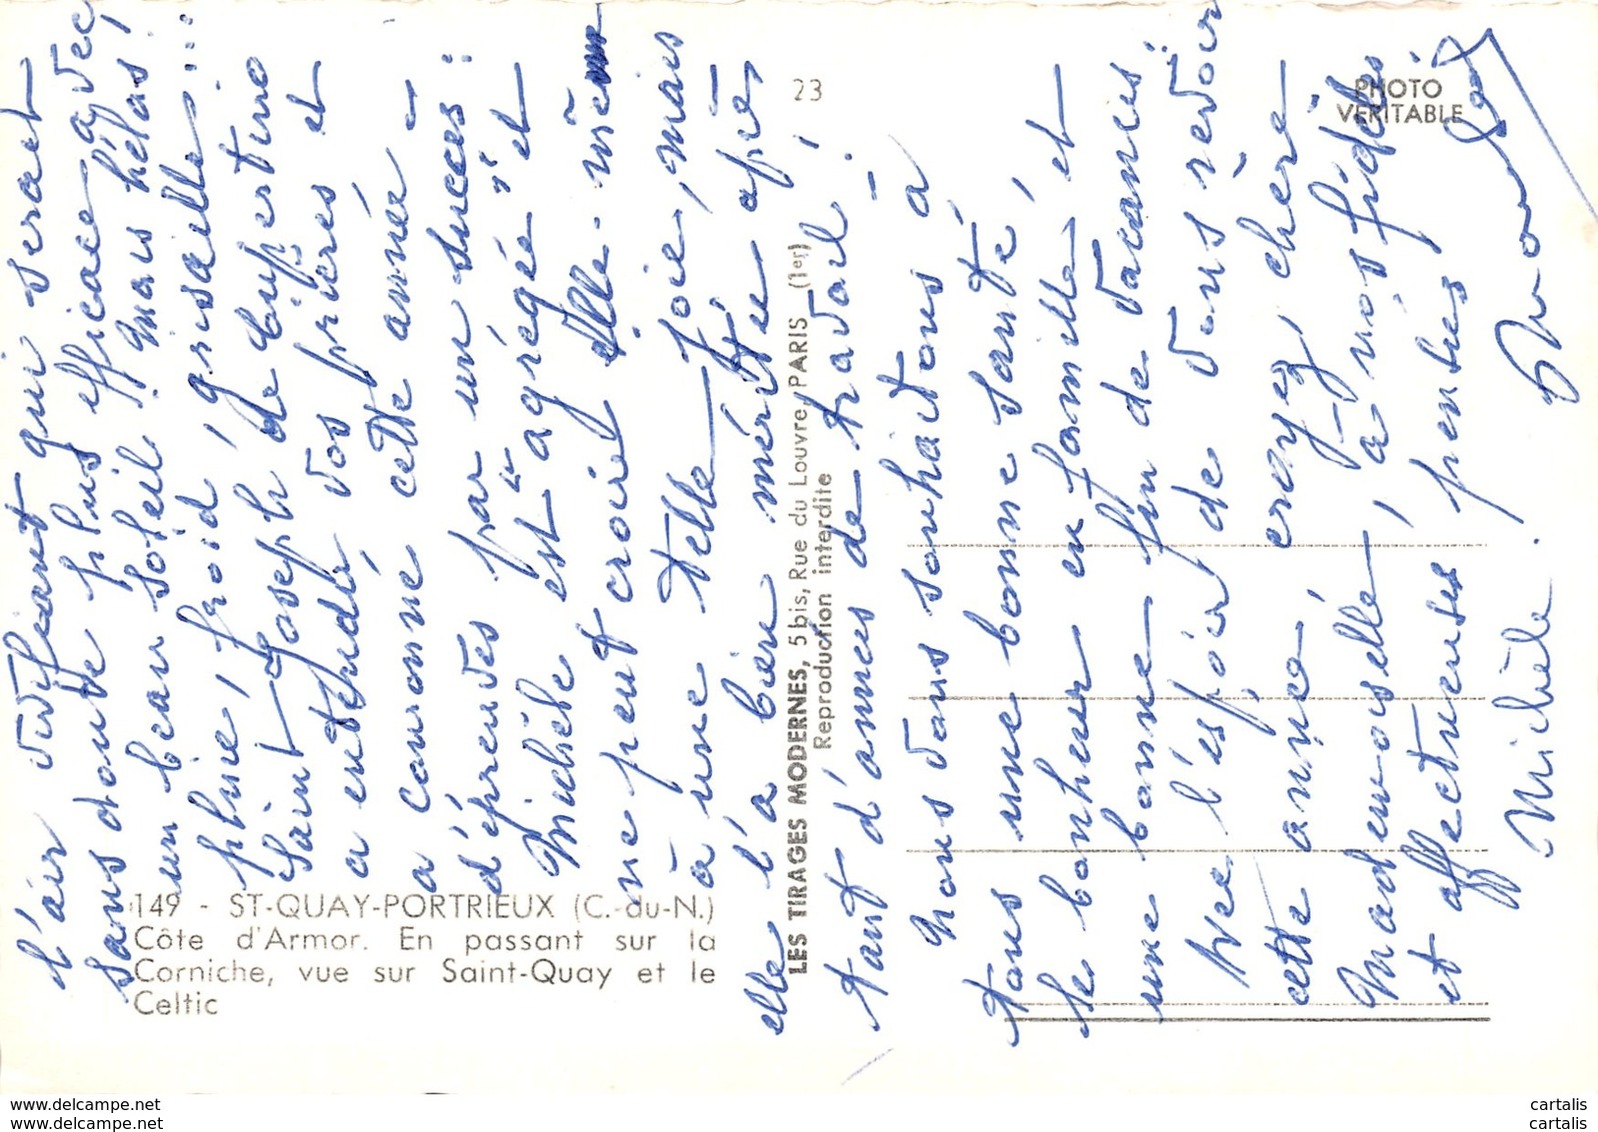 l'air vivifiant qui serait
sans doute plus efficace avec
un beau soleil mais hélas !
pluie, froid, grisaille...
Saint Joseph de Cupertino
a entendu vos prières et
a couronné cette année
d'épreuves par un succès :
Michèle est "agrégée" et
ne peut croire elle-même
à une telle joie, mais
elle l'a bien méritée après
tant d'années de travail !
Nous vous souhaitons à
tous une bonne santé,
le bonheur en famille et
une bonne fin de vacances.
Avec l'espoir de vous revoir
cette année croyez, chère
Mademoiselle, à nos fidèles
et affectueuses pensées
Michèle.
149 - ST-QUAY-PORTRIEUX (C.-du-N.)
Côte d'Armor. En passant sur la
Corniche, vue sur Saint-Quay et le
Celtic
LES TIRAGES MODERNES, 5 bis, Rue du Louvre, PARIS (1er)
Reproduction interdite
23
PHOTO
VÉRITABLE
www.delcampe.net
www.delcampe.net
cartalis
cartalis